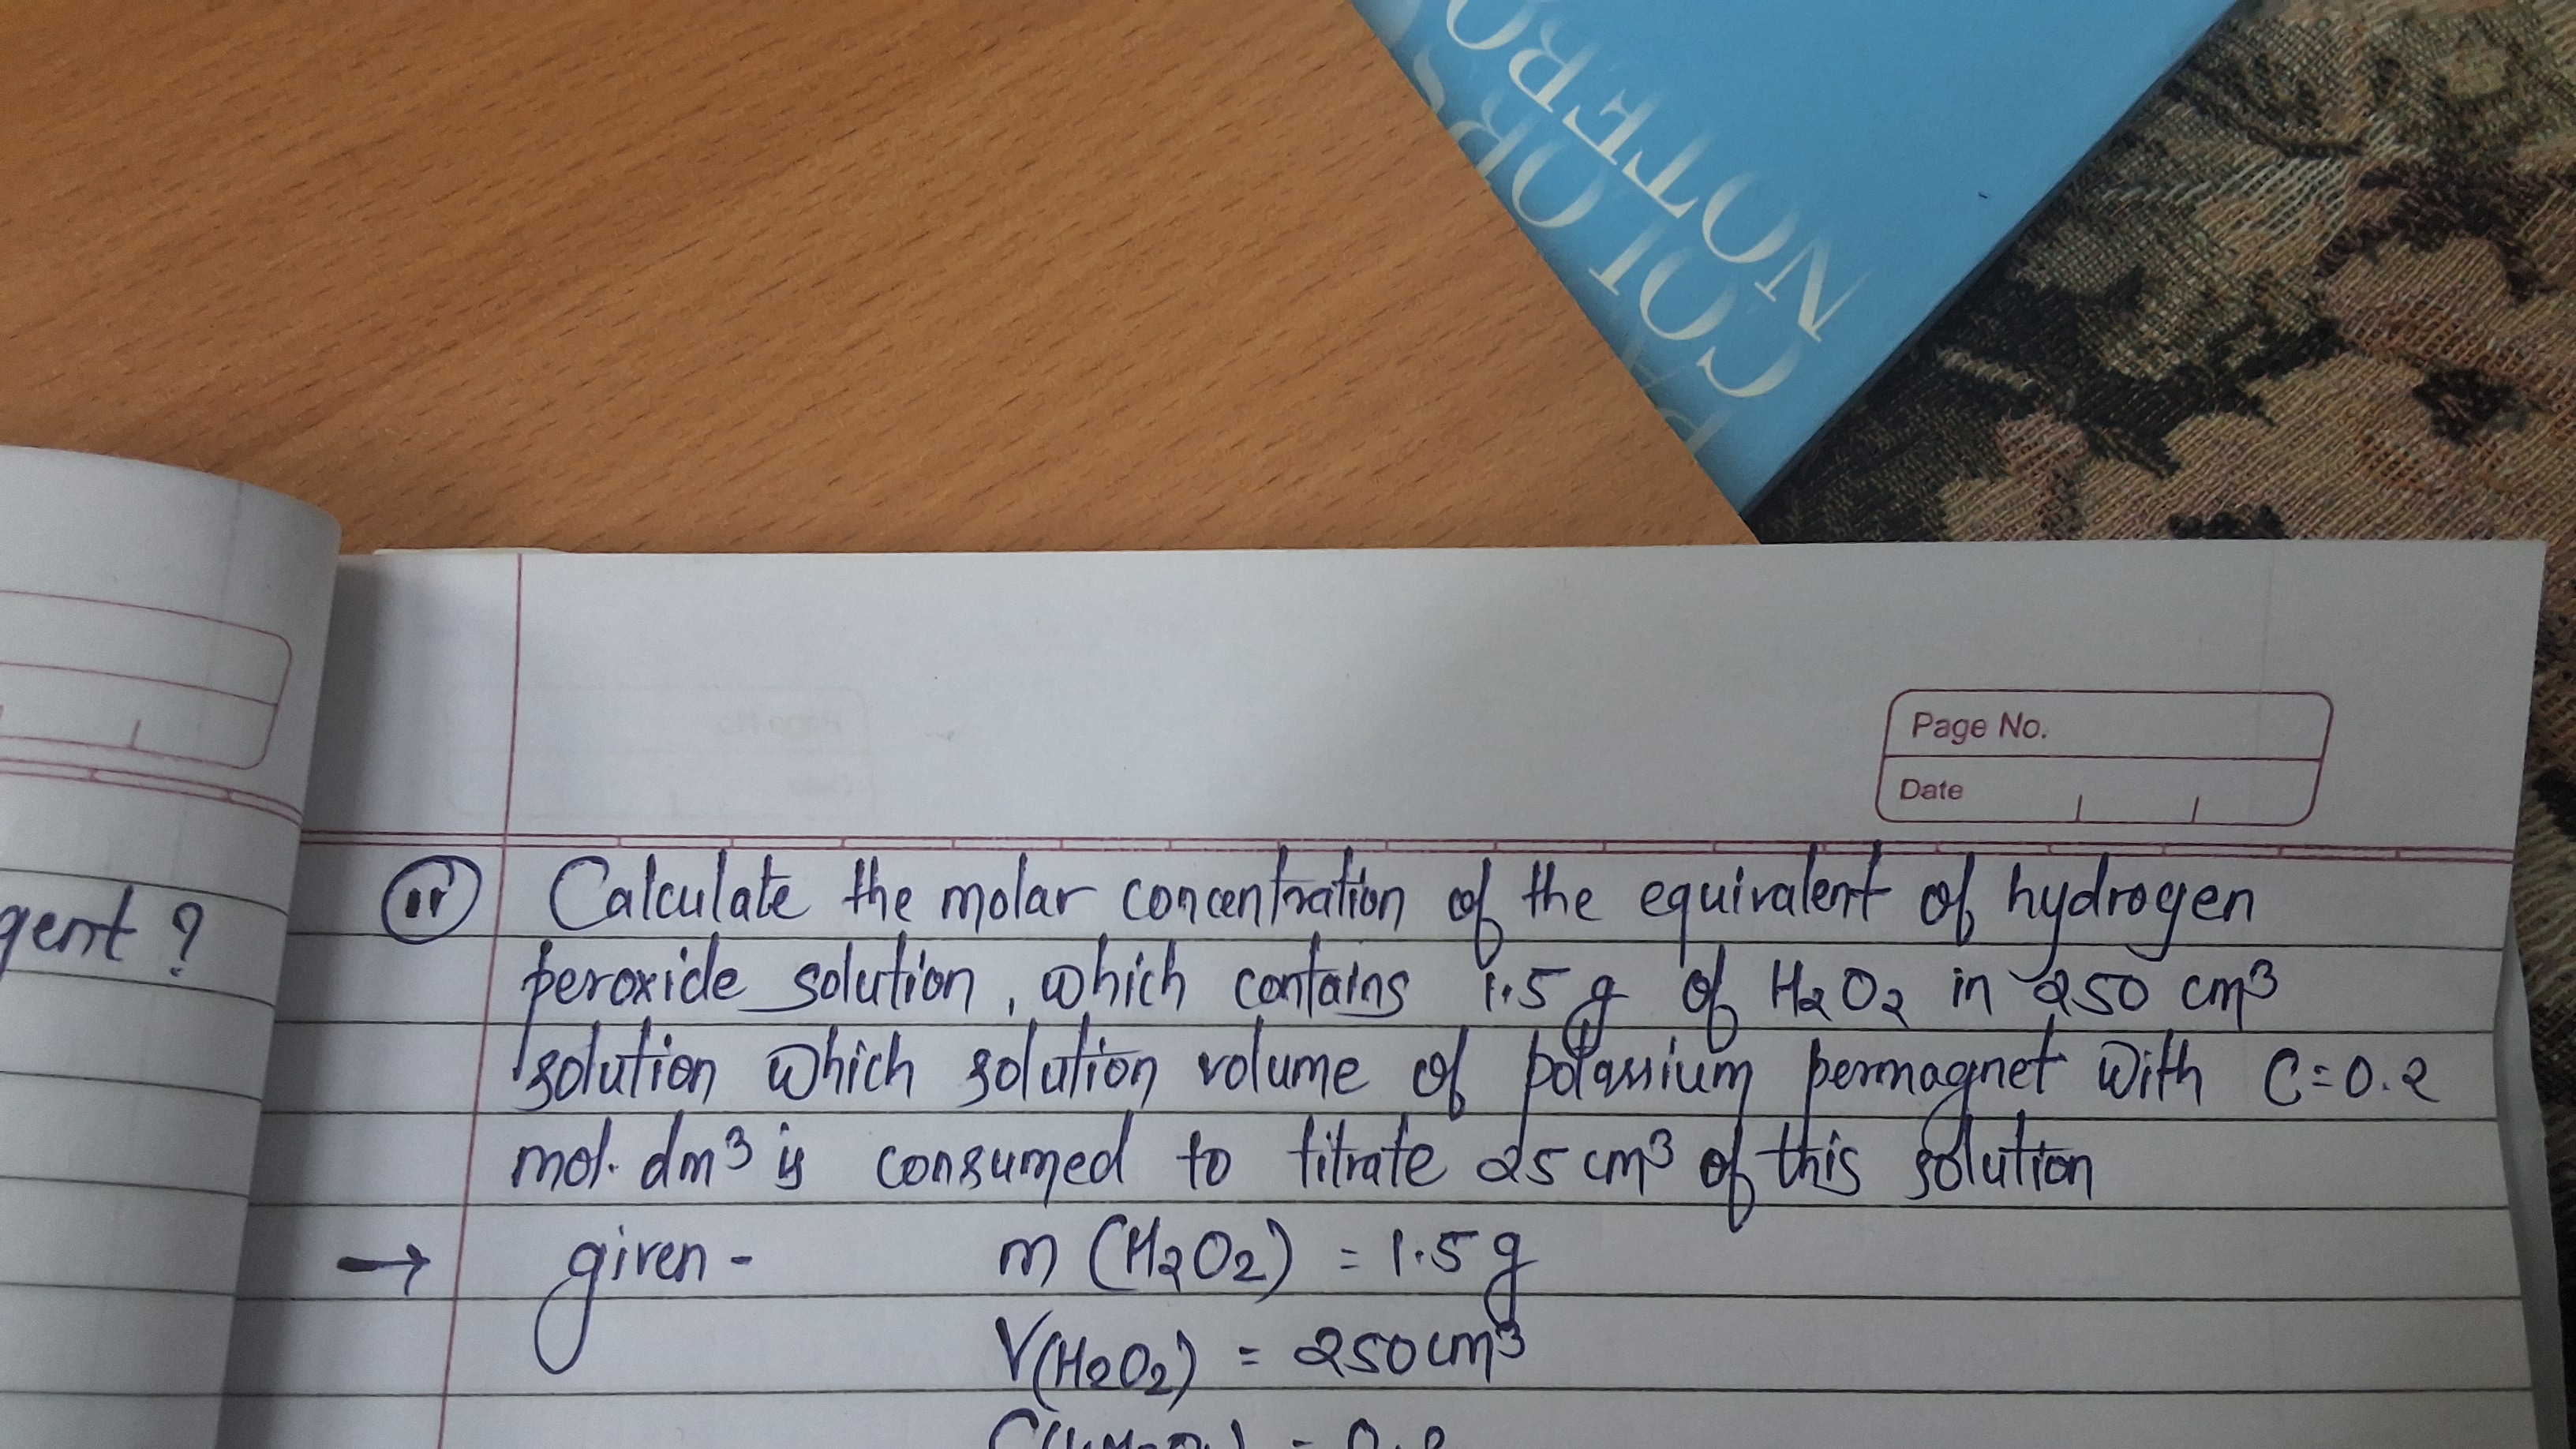 NOTEBO
COLORS
Page No.
Date
gent ?
Calculate the molar concentration of the equivalent of hydrogen
peroxide solution, which contains 1.5 g of H2O2 in 250 cm3
solution which solution volume of potassium permagnet with C=0.2
mol. dm3 is consumed to titrate 25 cm3 of this solution
→ given - m (H2O2) = 1.5 g
V(H2O2) = 250 cm3